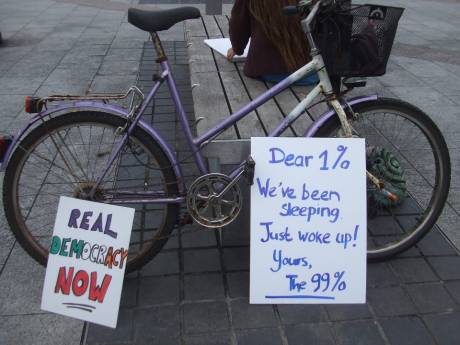 REAL
DEMOCRACY
NOW
Dear 1%
We've been
sleeping.
Just woke up!
Yours,
The 99%